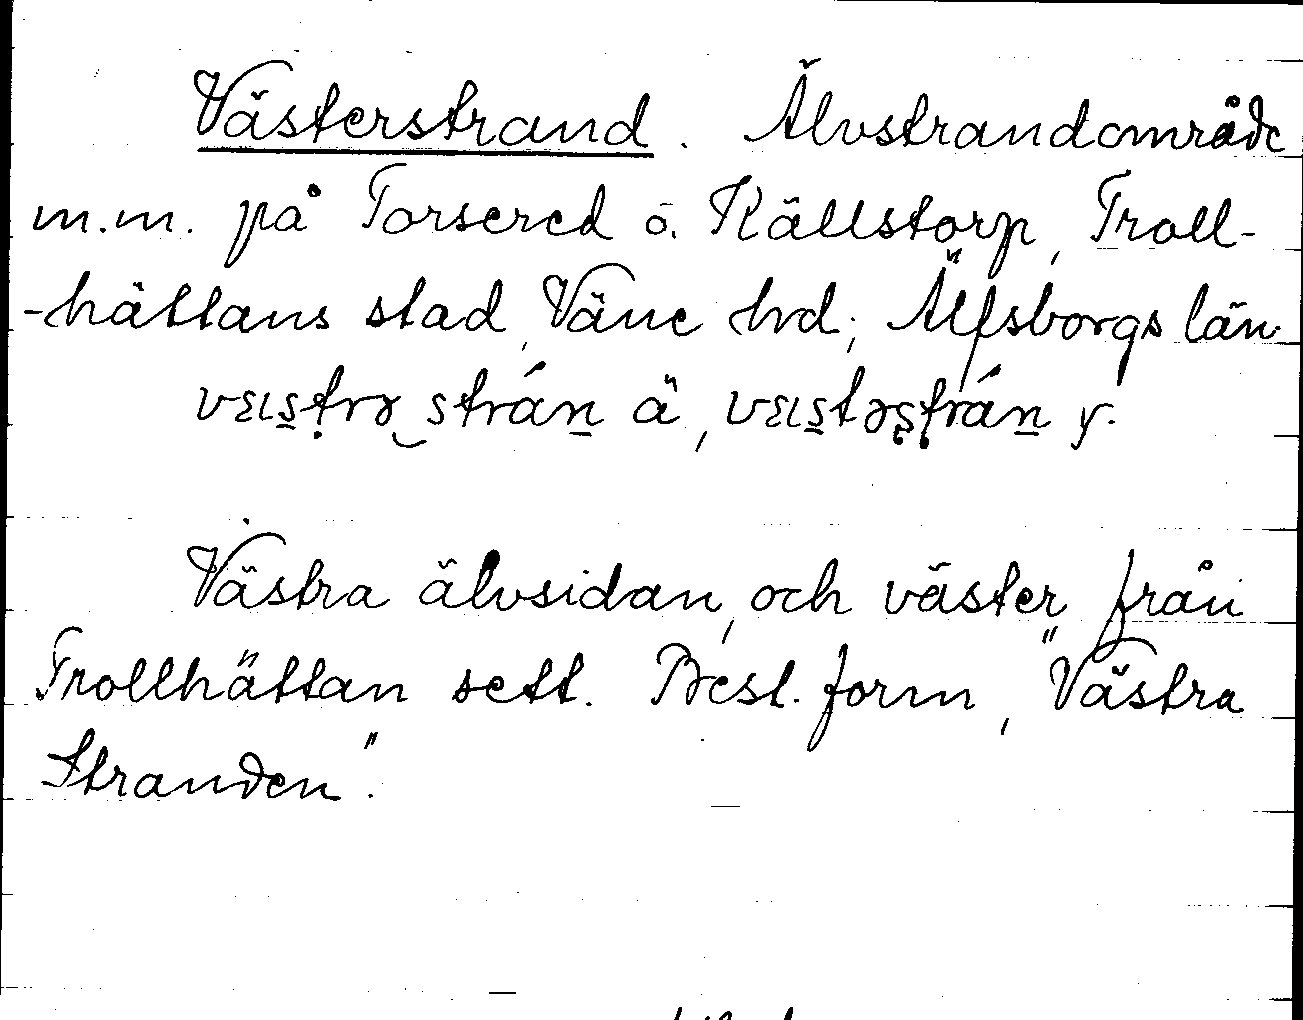 Västerstrand. Älvstrandområde
m.m. på Torsered o. Källstorp, Troll-
-hättans stad, Väne hd, Älfsborgs län
vɛıs̠tṛə‿strán̠ ä, vɛıs̠təʂtrán̠ y.
Västra älvsidan, och väster från
Trollhättan sett. Best. form, "Västra
Stranden".